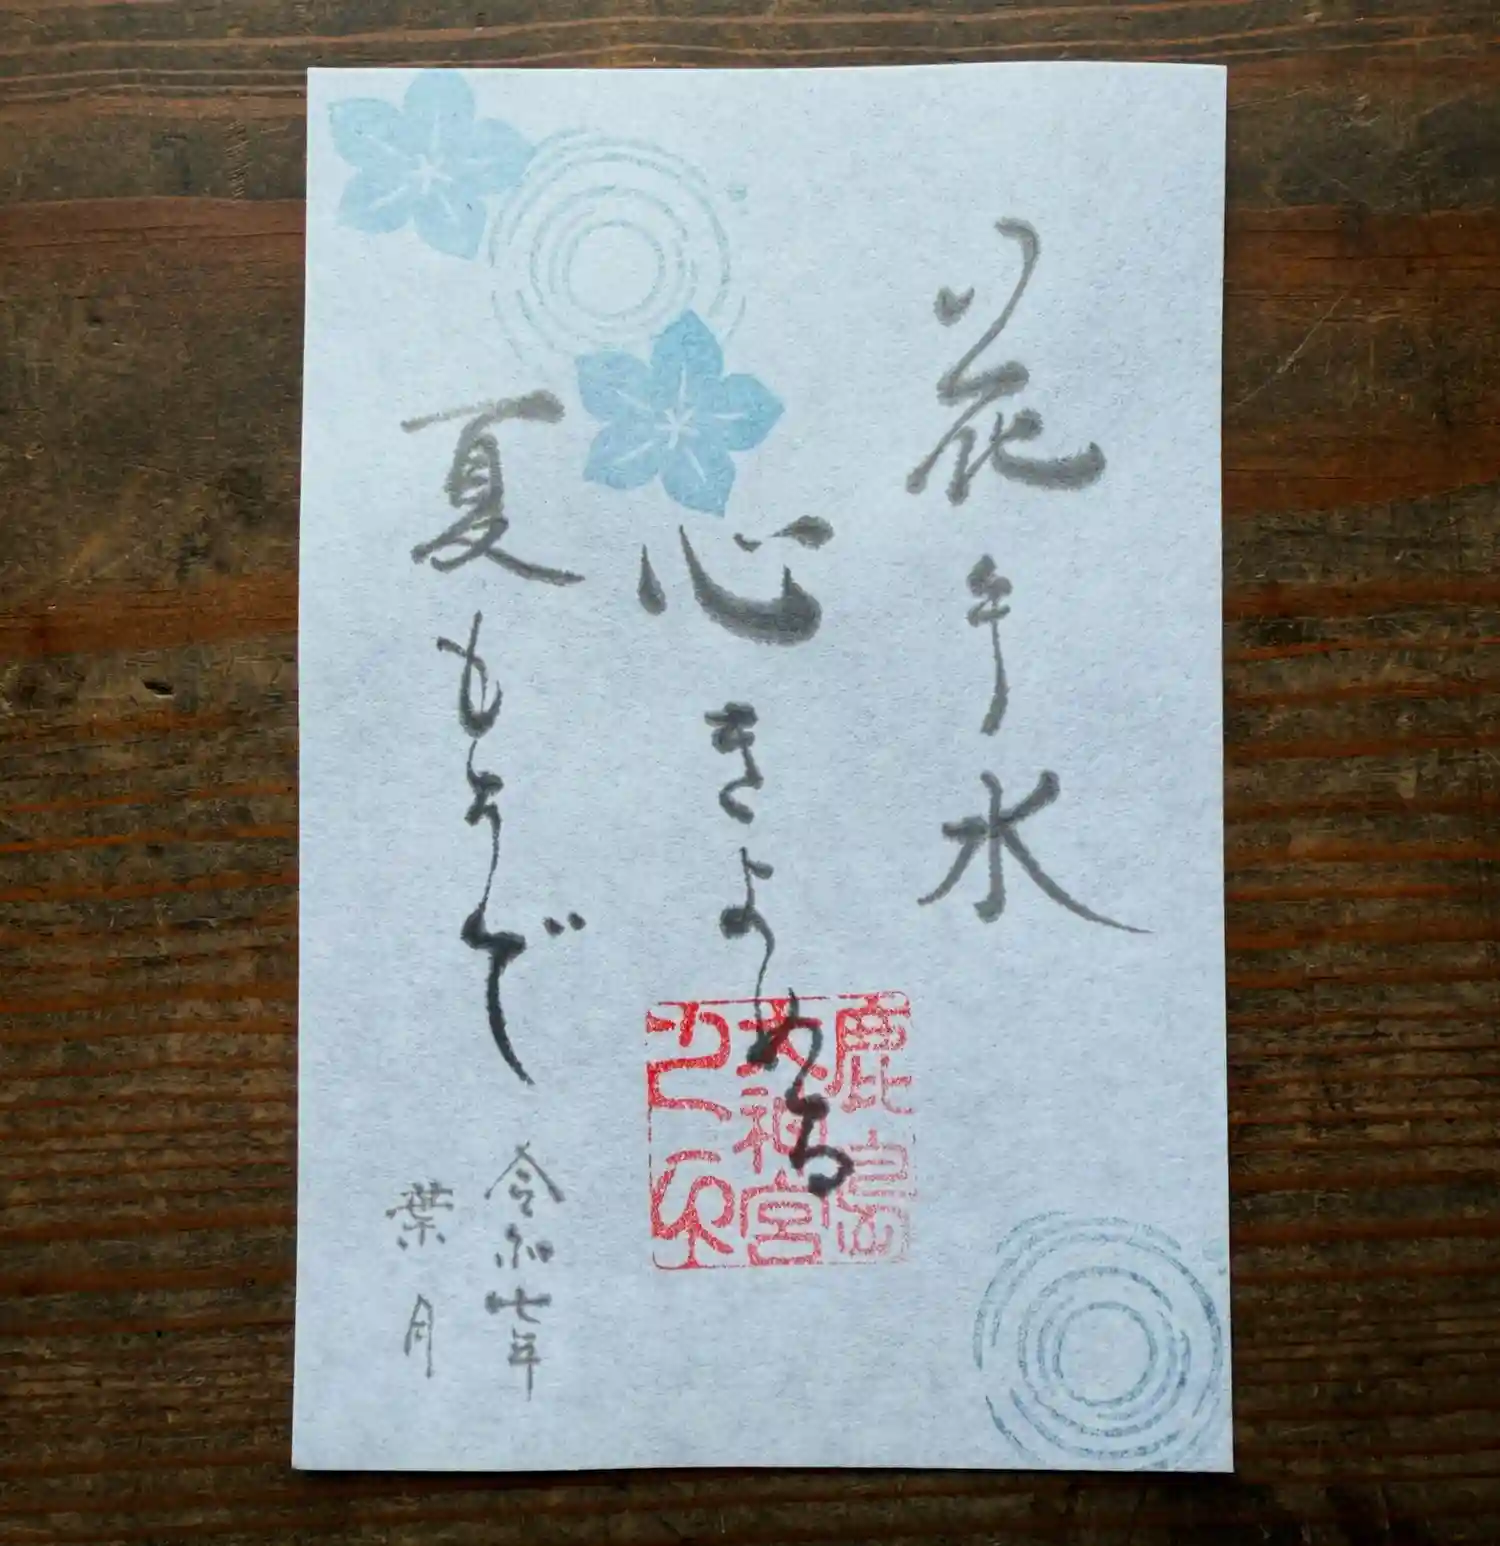 花手水
心きよめる
夏もうで
令和七年
葉月
鹿島
大神宮